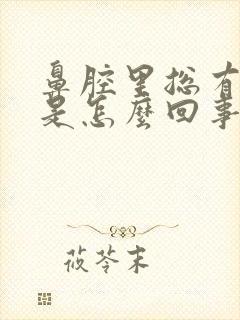 鼻腔里总有
是怎麼回事
莜苓末